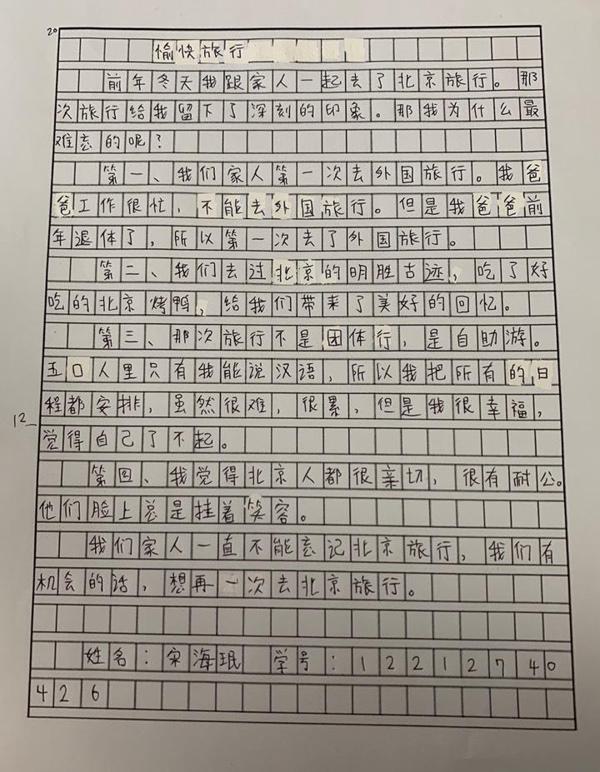 20
愉快旅行
前年冬天我跟家人一起去了北京旅行。那
次旅行给我留下了深刻的印象。那我为什么最
难忘的呢？
第一、我们家人第一次去外国旅行。我爸
爸工作很忙，不能去外国旅行。但是我爸爸前
年退体了，所以第一次去了外国旅行。
第二、我们去过北京的明胜古迹，吃了好
吃的北京烤鸭，给我们带来了美好的回忆。
第三、那次旅行不是团体行，是自助游。
五口人里只有我能说汉语，所以我把所有的日
程都安排，虽然很难，很累，但是我很幸福，
12
觉得自己了不起。
第四、我觉得北京人都很亲切，很有耐公。
他们脸上总是挂着笑容。
我们家人一直不能忘记北京旅行，我们有
机会的话，想再一次去北京旅行。
姓名：宋海珉 学号：12212740
426